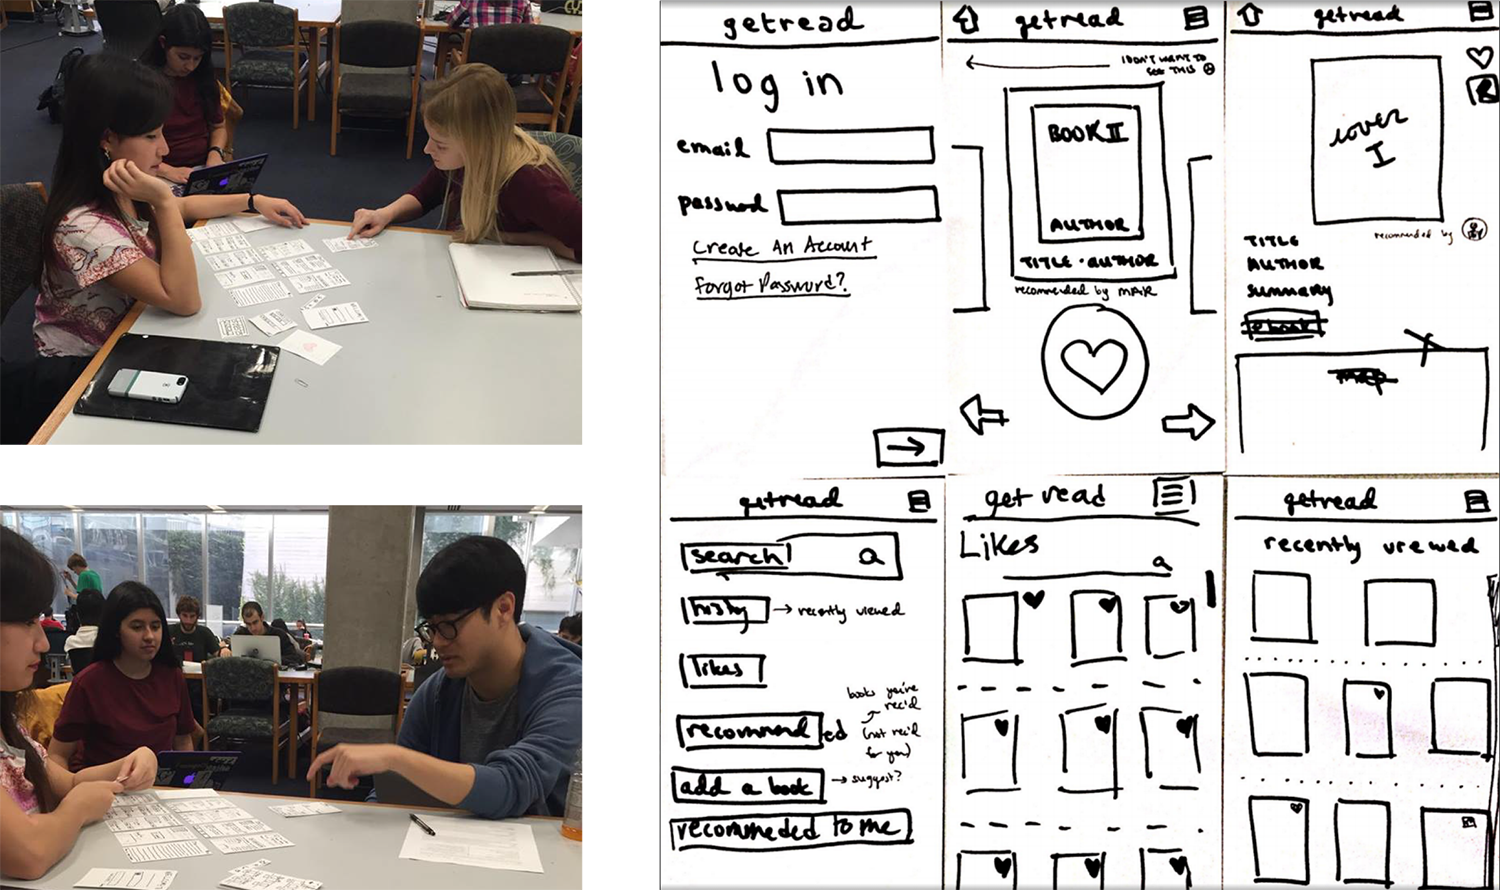 getread
log in
email
password
Create An Account
Forgot Password?
getread
I DON'T WANT TO
SEE THIS
BOOK II
AUTHOR
TITLE · AUTHOR
recommended by MAIR
getread
R
cover
I
recommended by
TITLE
AUTHOR
summary
ebook
map
getread
search
histry
→ recently viewed
likes
recommended
books you're
rec'd
(not rec'd
for you)
add a book
→ suggest?
recommeded to me
get read
Likes
getread
recently viewed